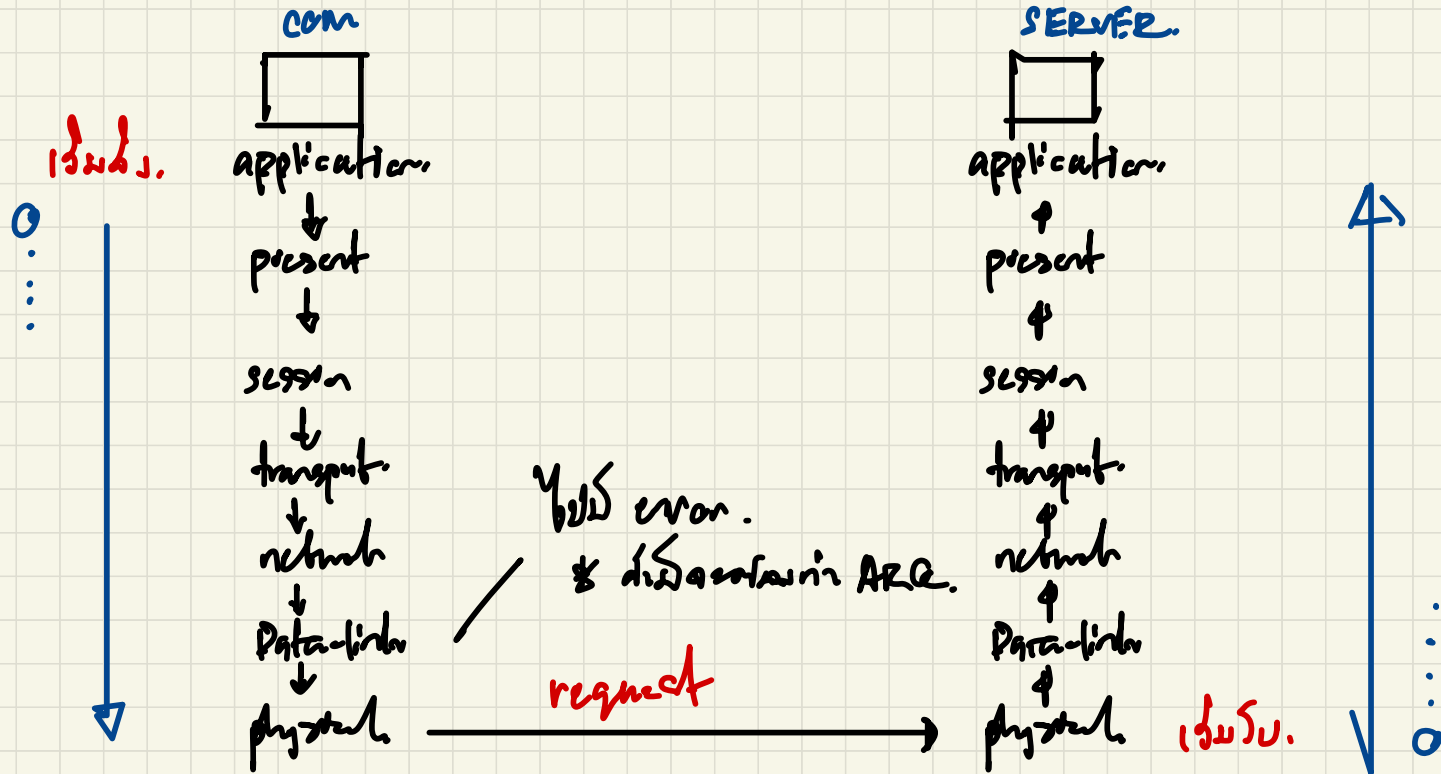 com
SERVER.
เริ่มส่ง.
application.
present
session
transport.
network
Data-link
physical
ไม่มี error.
request
application.
present
session
transport.
network
Data-link
physical
เริ่มรับ.